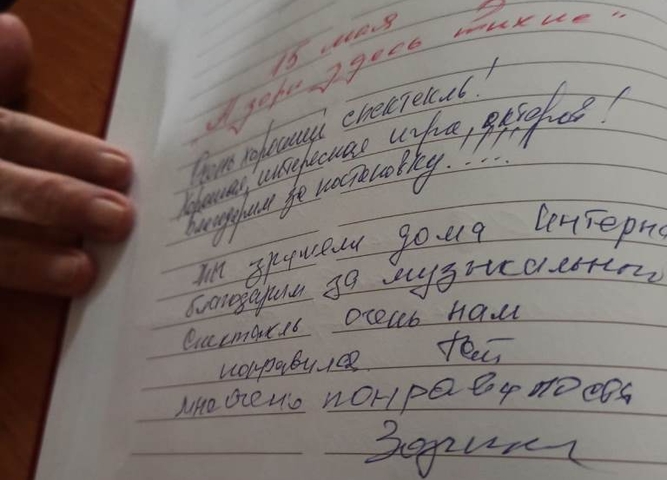 15 мая
"А зори здесь тихие"
Очень хороший спектекль!
Хорошая, интересная игра, актеров!
Благодарим за постановку.....
мы зрители дома Интерна
благодарим за музыкального
Спектакль очень нам
понравился.
мне очень понравилось